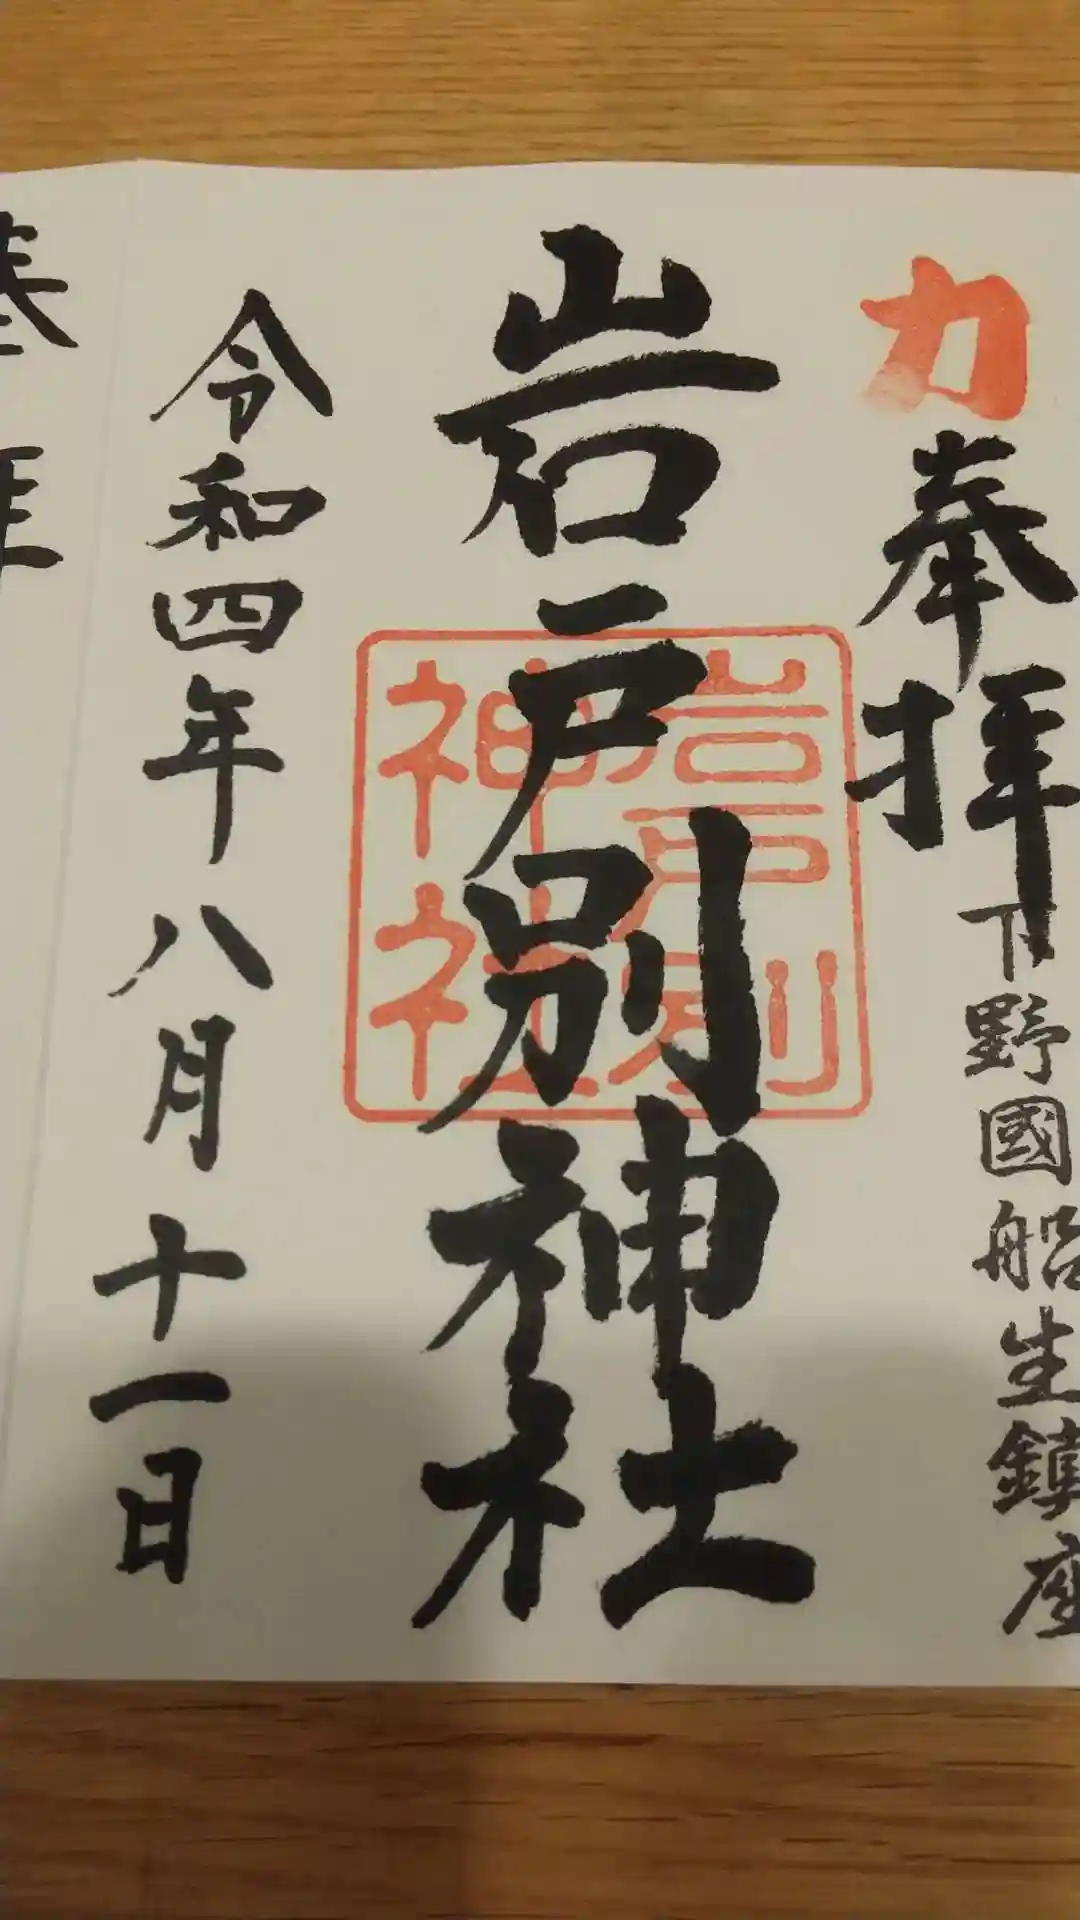 力
奉拝
下野國船生鎮座
岩戸別神社
岩戸別
神社
令和四年八月十一日
奉拝